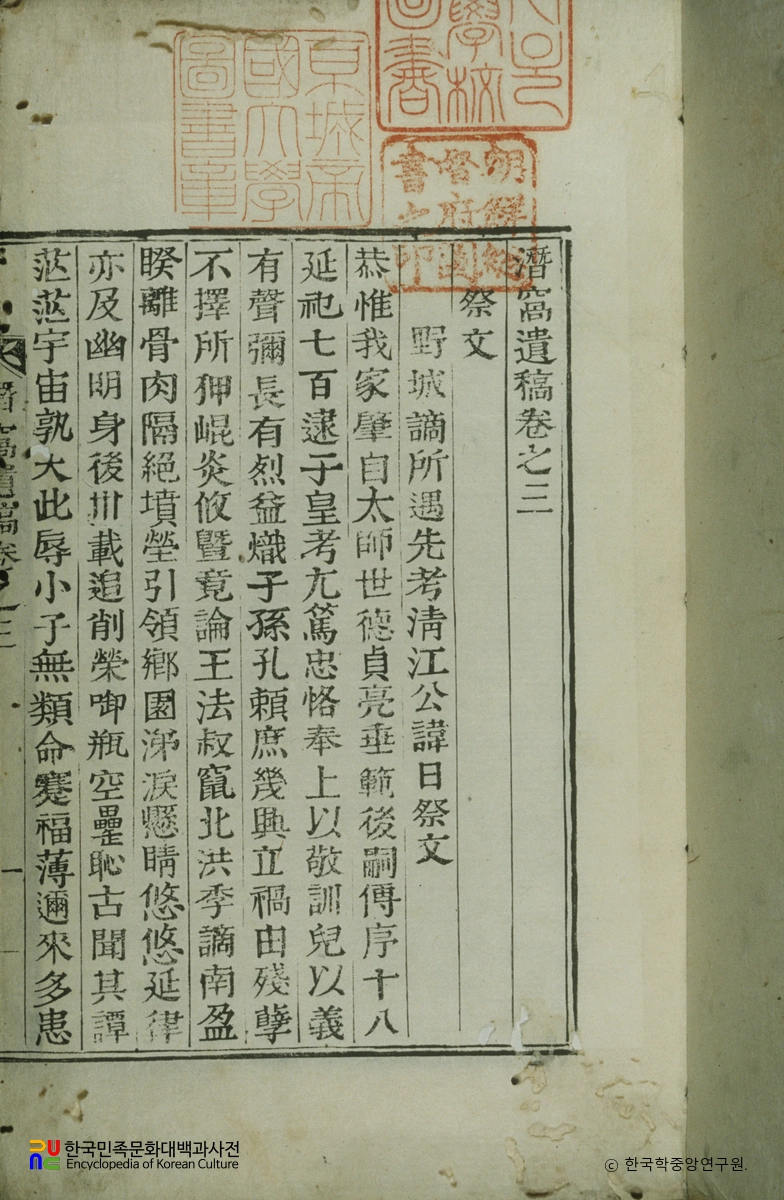 京城帝
國大學
圖書章
學校
圖書
朝鮮總
督府圖
書之印
潛窩遺稿卷之三
祭文
野城謫所遇先考淸江公諱日祭文
恭惟我家肇自太師世德貞亮垂範後嗣傳序十八
延祀七百逮于皇考尤篤忠恪奉上以敬訓兒以義
有聲彌長有烈益熾子孫孔賴庶幾興立禍由殘孽
不擇所狎崐炎攸曁竟論王法叔竄北洪季謫南盈
睽離骨肉隔絶墳塋引領鄕園涕淚懸睛悠悠延律
亦及幽明身後卅載追削榮啣甁空罍恥古聞其譚
茫茫宇宙孰大此辱小子無類命蹇福薄邇來多患
潛窩遺稿卷之三
一
한국민족문화대백과사전
Encyclopedia of Korean Culture
ⓒ 한국학중앙연구원.